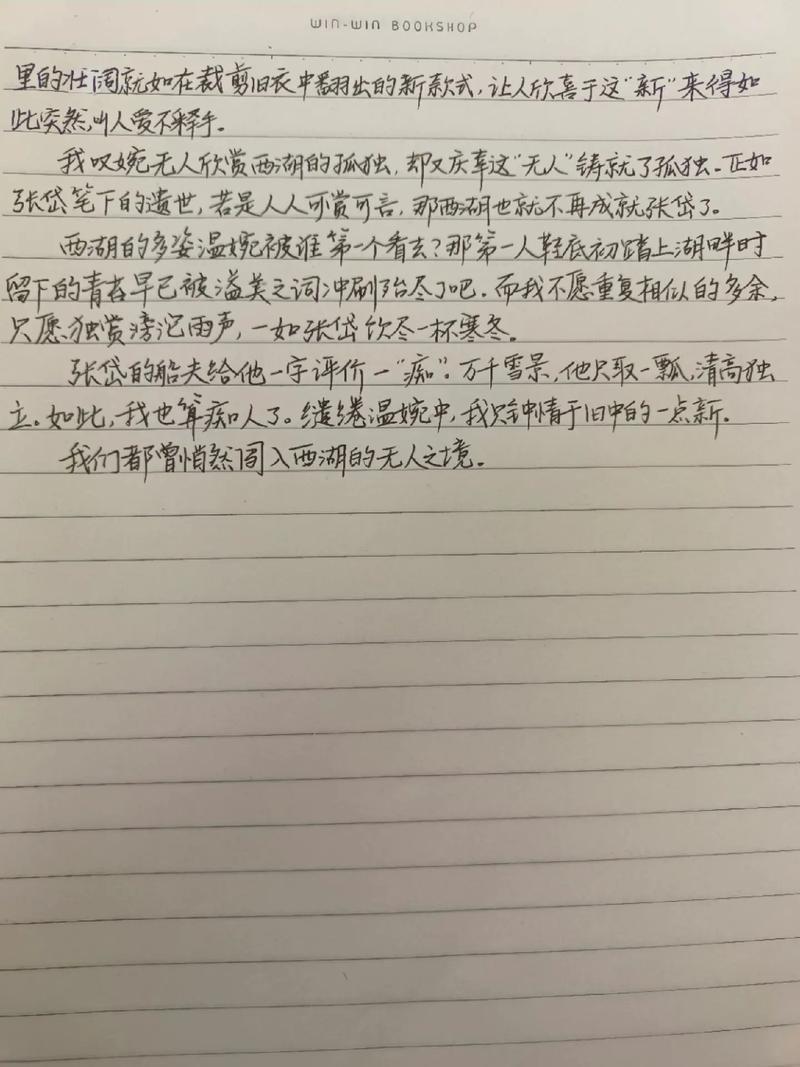 WIN-WIN BOOKSHOP
里的壮阔就如在裁剪旧衣中翻出的新款式，让人欣喜于这“新”来得如
此突然，叫人爱不释手。
我叹婉无人欣赏西湖的孤独，却又庆幸这“无人”铸就了孤独。正如
张岱笔下的遗世，若是人人可赏可言，那西湖也就不再成就张岱了。
西湖的多姿温婉被谁第一个看去？那第一人鞋底初踏上湖畔时
留下的青苔早已被溢美之词冲刷殆尽了吧。而我不愿重复相似的多余，
只愿独赏滂沱雨声，一如张岱饮尽一杯寒冬。
张岱的船夫给他一字评价—“痴”。万千雪景，他只取一瓢，清高独
立。如此，我也算痴人了。缱绻温婉中，我只钟情于旧中的一点新。
我们都曾悄然闯入西湖的无人之境。